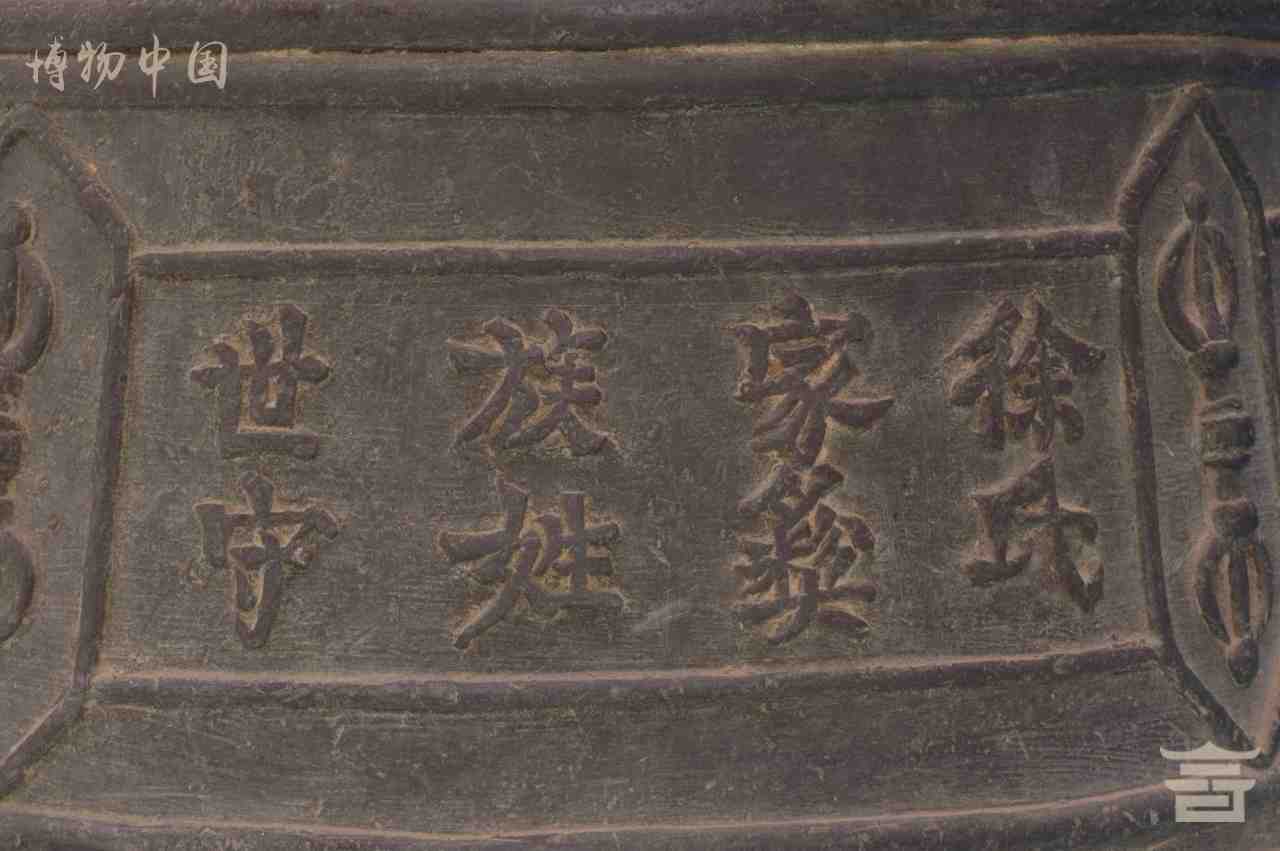 博物中国
徐氏
家彝
族姓
世守